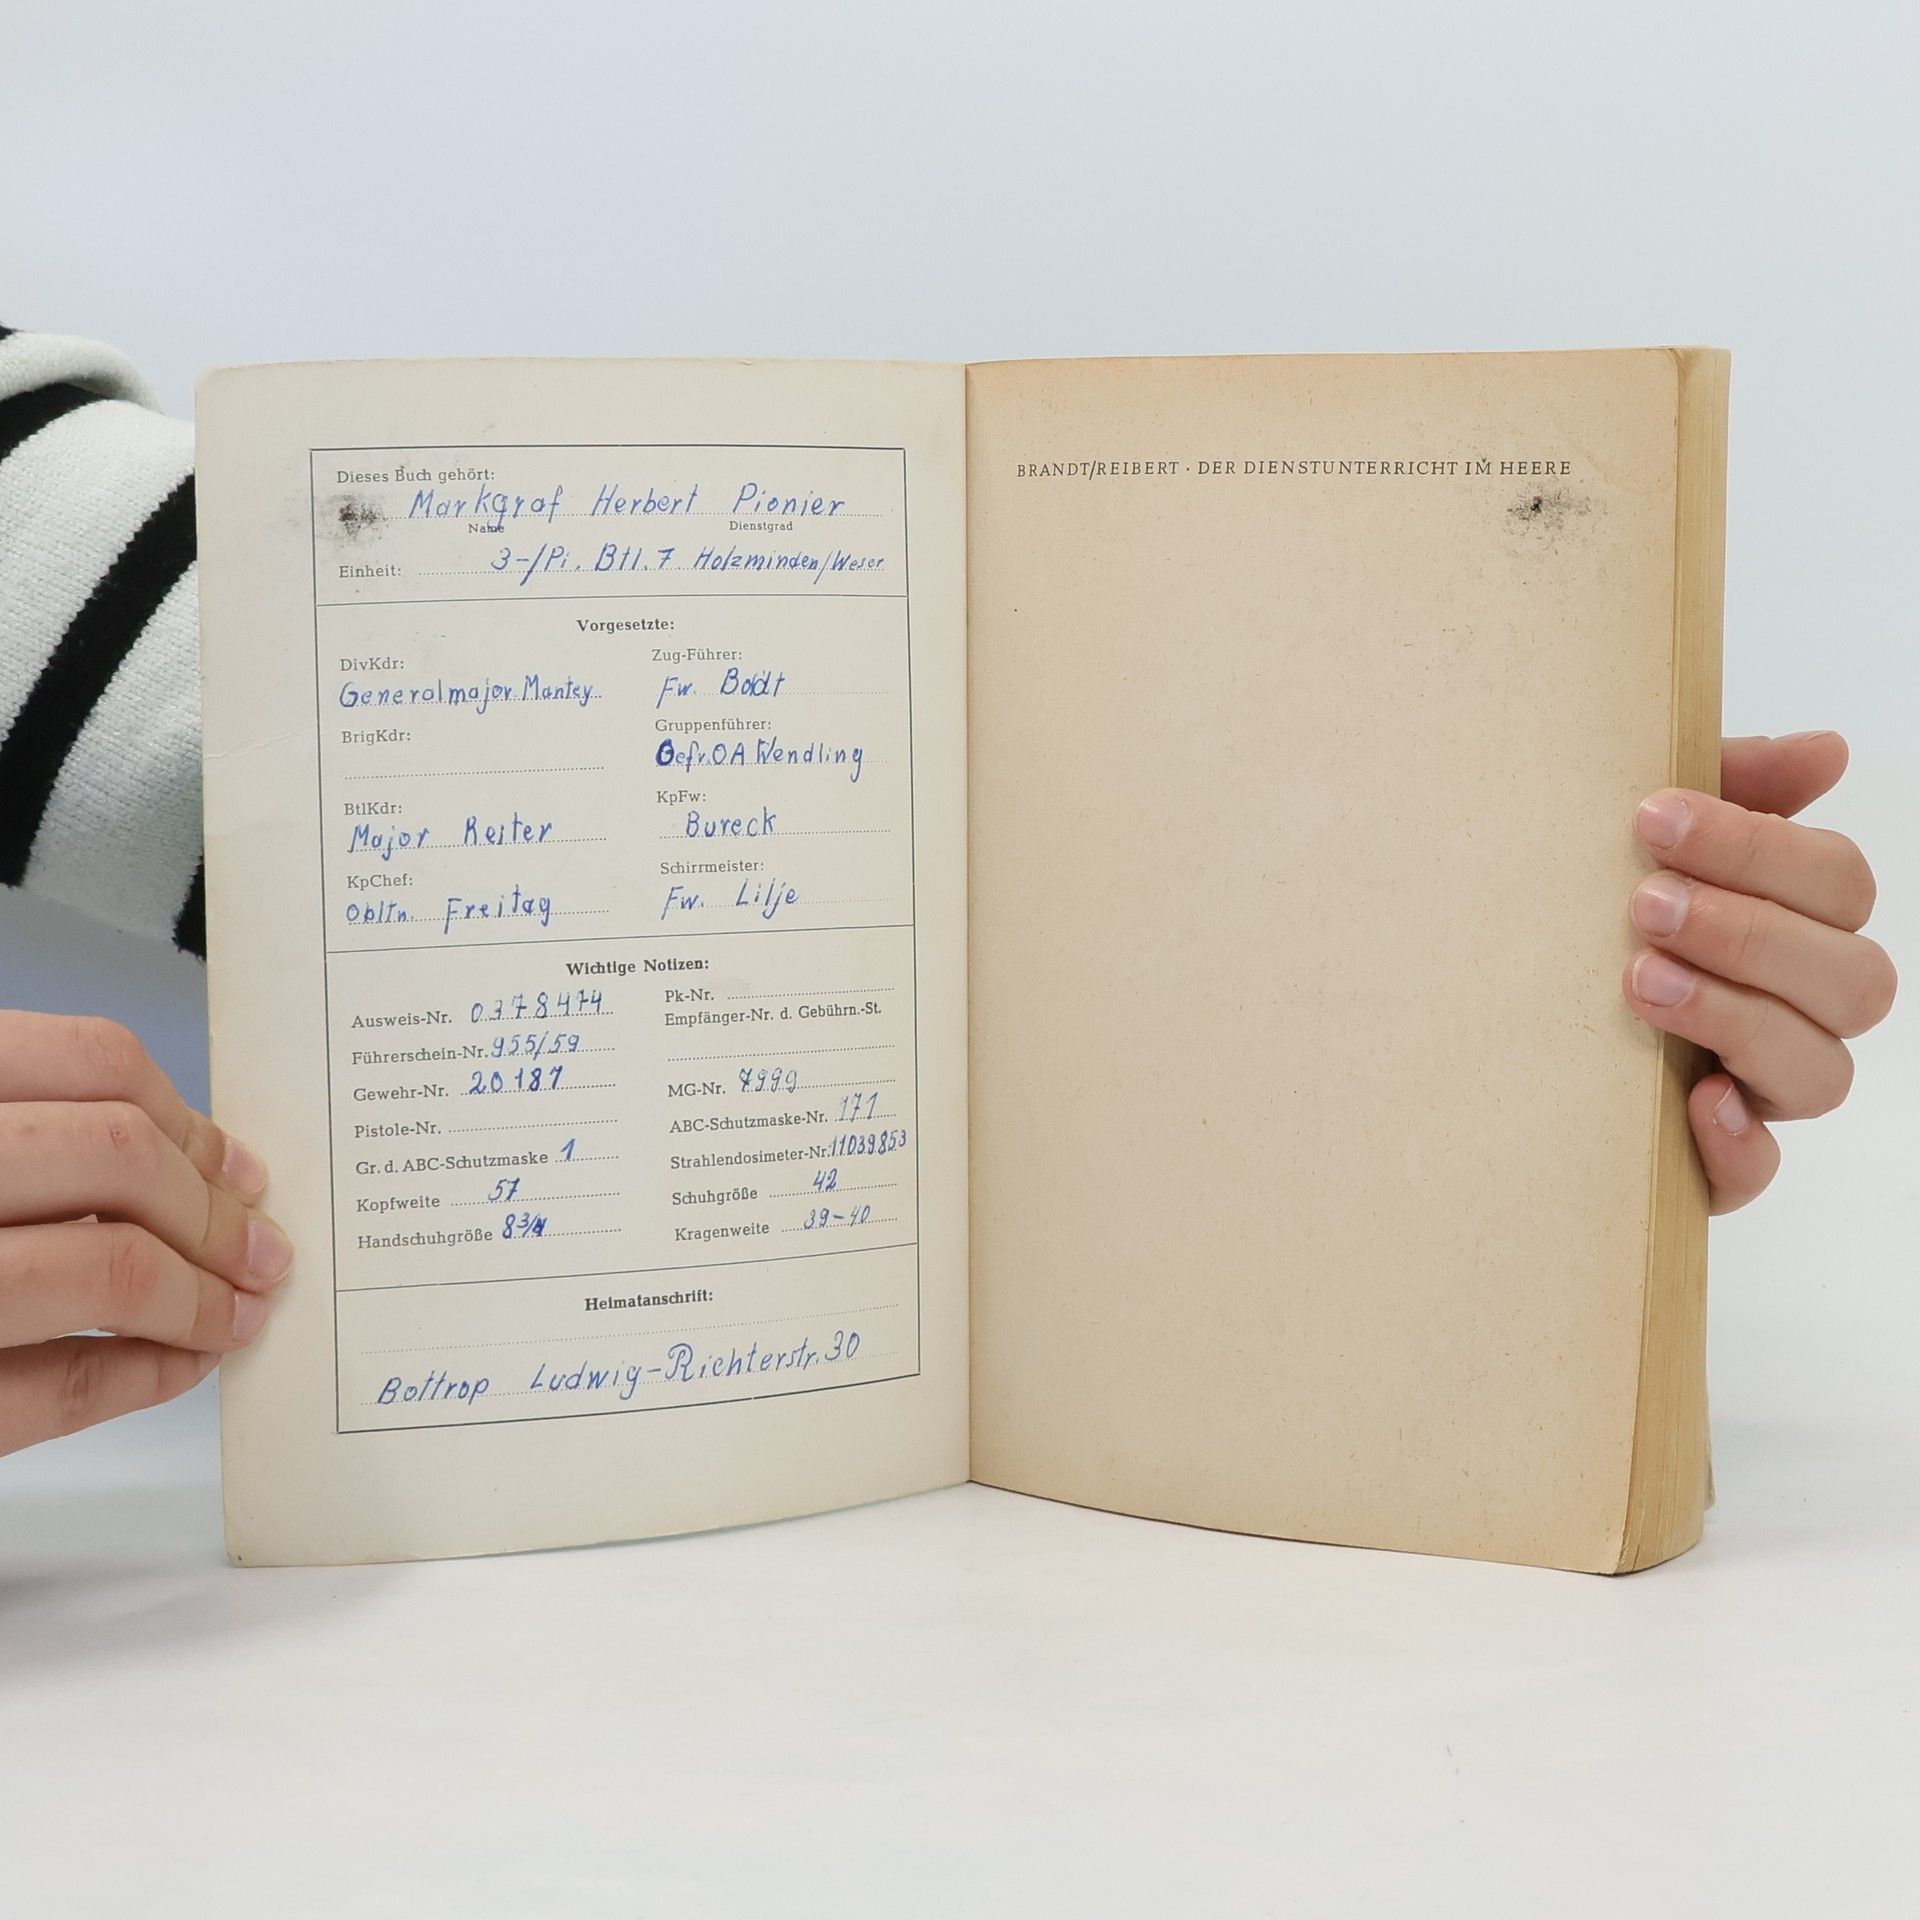 Dieses Buch gehört:
Markgraf Herbert Pionier
Name Dienstgrad
Einheit: 3-/Pi. Btl. 7 Holzminden/Weser
Vorgesetzte:
DivKdr:
Generalmajor Mantey
BrigKdr:
BtlKdr:
Major Reiter
KpChef:
Obltn. Freitag
Zug-Führer:
Fw. Boldt
Gruppenführer:
Gefr. OA Wendling
KpFw:
Bureck
Schirrmeister:
Fw. Lilje
Wichtige Notizen:
Ausweis-Nr. 0378474
Führerschein-Nr. 955/59
Gewehr-Nr. 20187
Pistole-Nr.
Gr. d. ABC-Schutzmaske 1
Kopfweite 57
Handschuhgröße 8 3/4
Pk-Nr.
Empfänger-Nr. d. Gebührn.-St.
MG-Nr. 7999
ABC-Schutzmaske-Nr. 171
Strahlendosimeter-Nr. 11039853
Schuhgröße 42
Kragenweite 39-40
Heimatanschrift:
Bottrop Ludwig-Richterstr. 30
BRANDT/REIBERT · DER DIENSTUNTERRICHT IM HEERE